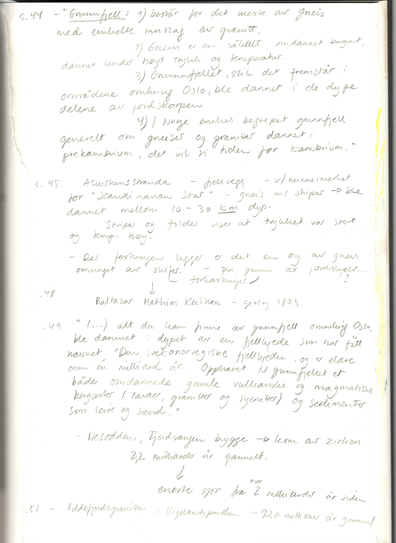 s.44 - "Grunnfjell: 1) består for det meste av gneis
med enkelte innslag av granitt.
2) Gneis er en såkalt omdannet bergart,
dannet under høyt trykk og temperatur.
3) Grunnfjellet, slik det fremstår i
områdene omkring Oslo, ble dannet i de dype
delene av jordskorpen
4) I Norge brukes begrepet grunnfjell
generelt om gneiser og granitter dannet i
prekambrium, det vil si tiden før kambrium."
s.45. Akershusstranda - fjellvegg - v/ minnesmerket
for "Scandinavian Star" - gneis m/ striper → ble
dannet mellom 10-30 km dyp.
Striper og folder viser at trykket var stort
og temp. høy.
- Der forkastningen ligger er det en øy av gneis
omringet av - på grunn av jordskjelv...
forkastninger ?
↓
.48 Baltazar Mathias Keilhau - geolog 1823
.49 "(...) alt du kan finne av grunnfjell omkring Oslo,
ble dannet i dypet av en fjellkjede som har fått
navnet "Den svekonorvegiske fjellkjeden, og er eldre
enn én milliard år. Opphavet til grunnfjellet er
både omdannede gamle vulkanske og magmatiske
bergarter (lavaer, granitter og syenitter) og sedimenter
som leire og sand."
- Nesodden, Fjordvangen brygge → korn av zirkon
2,2 milliarder år gammelt.
↓
eneste spor fra over 2 milliarder år siden
.51 - Iddefjordsgranitten i Vigelandsparken - 920 mill over år gammel